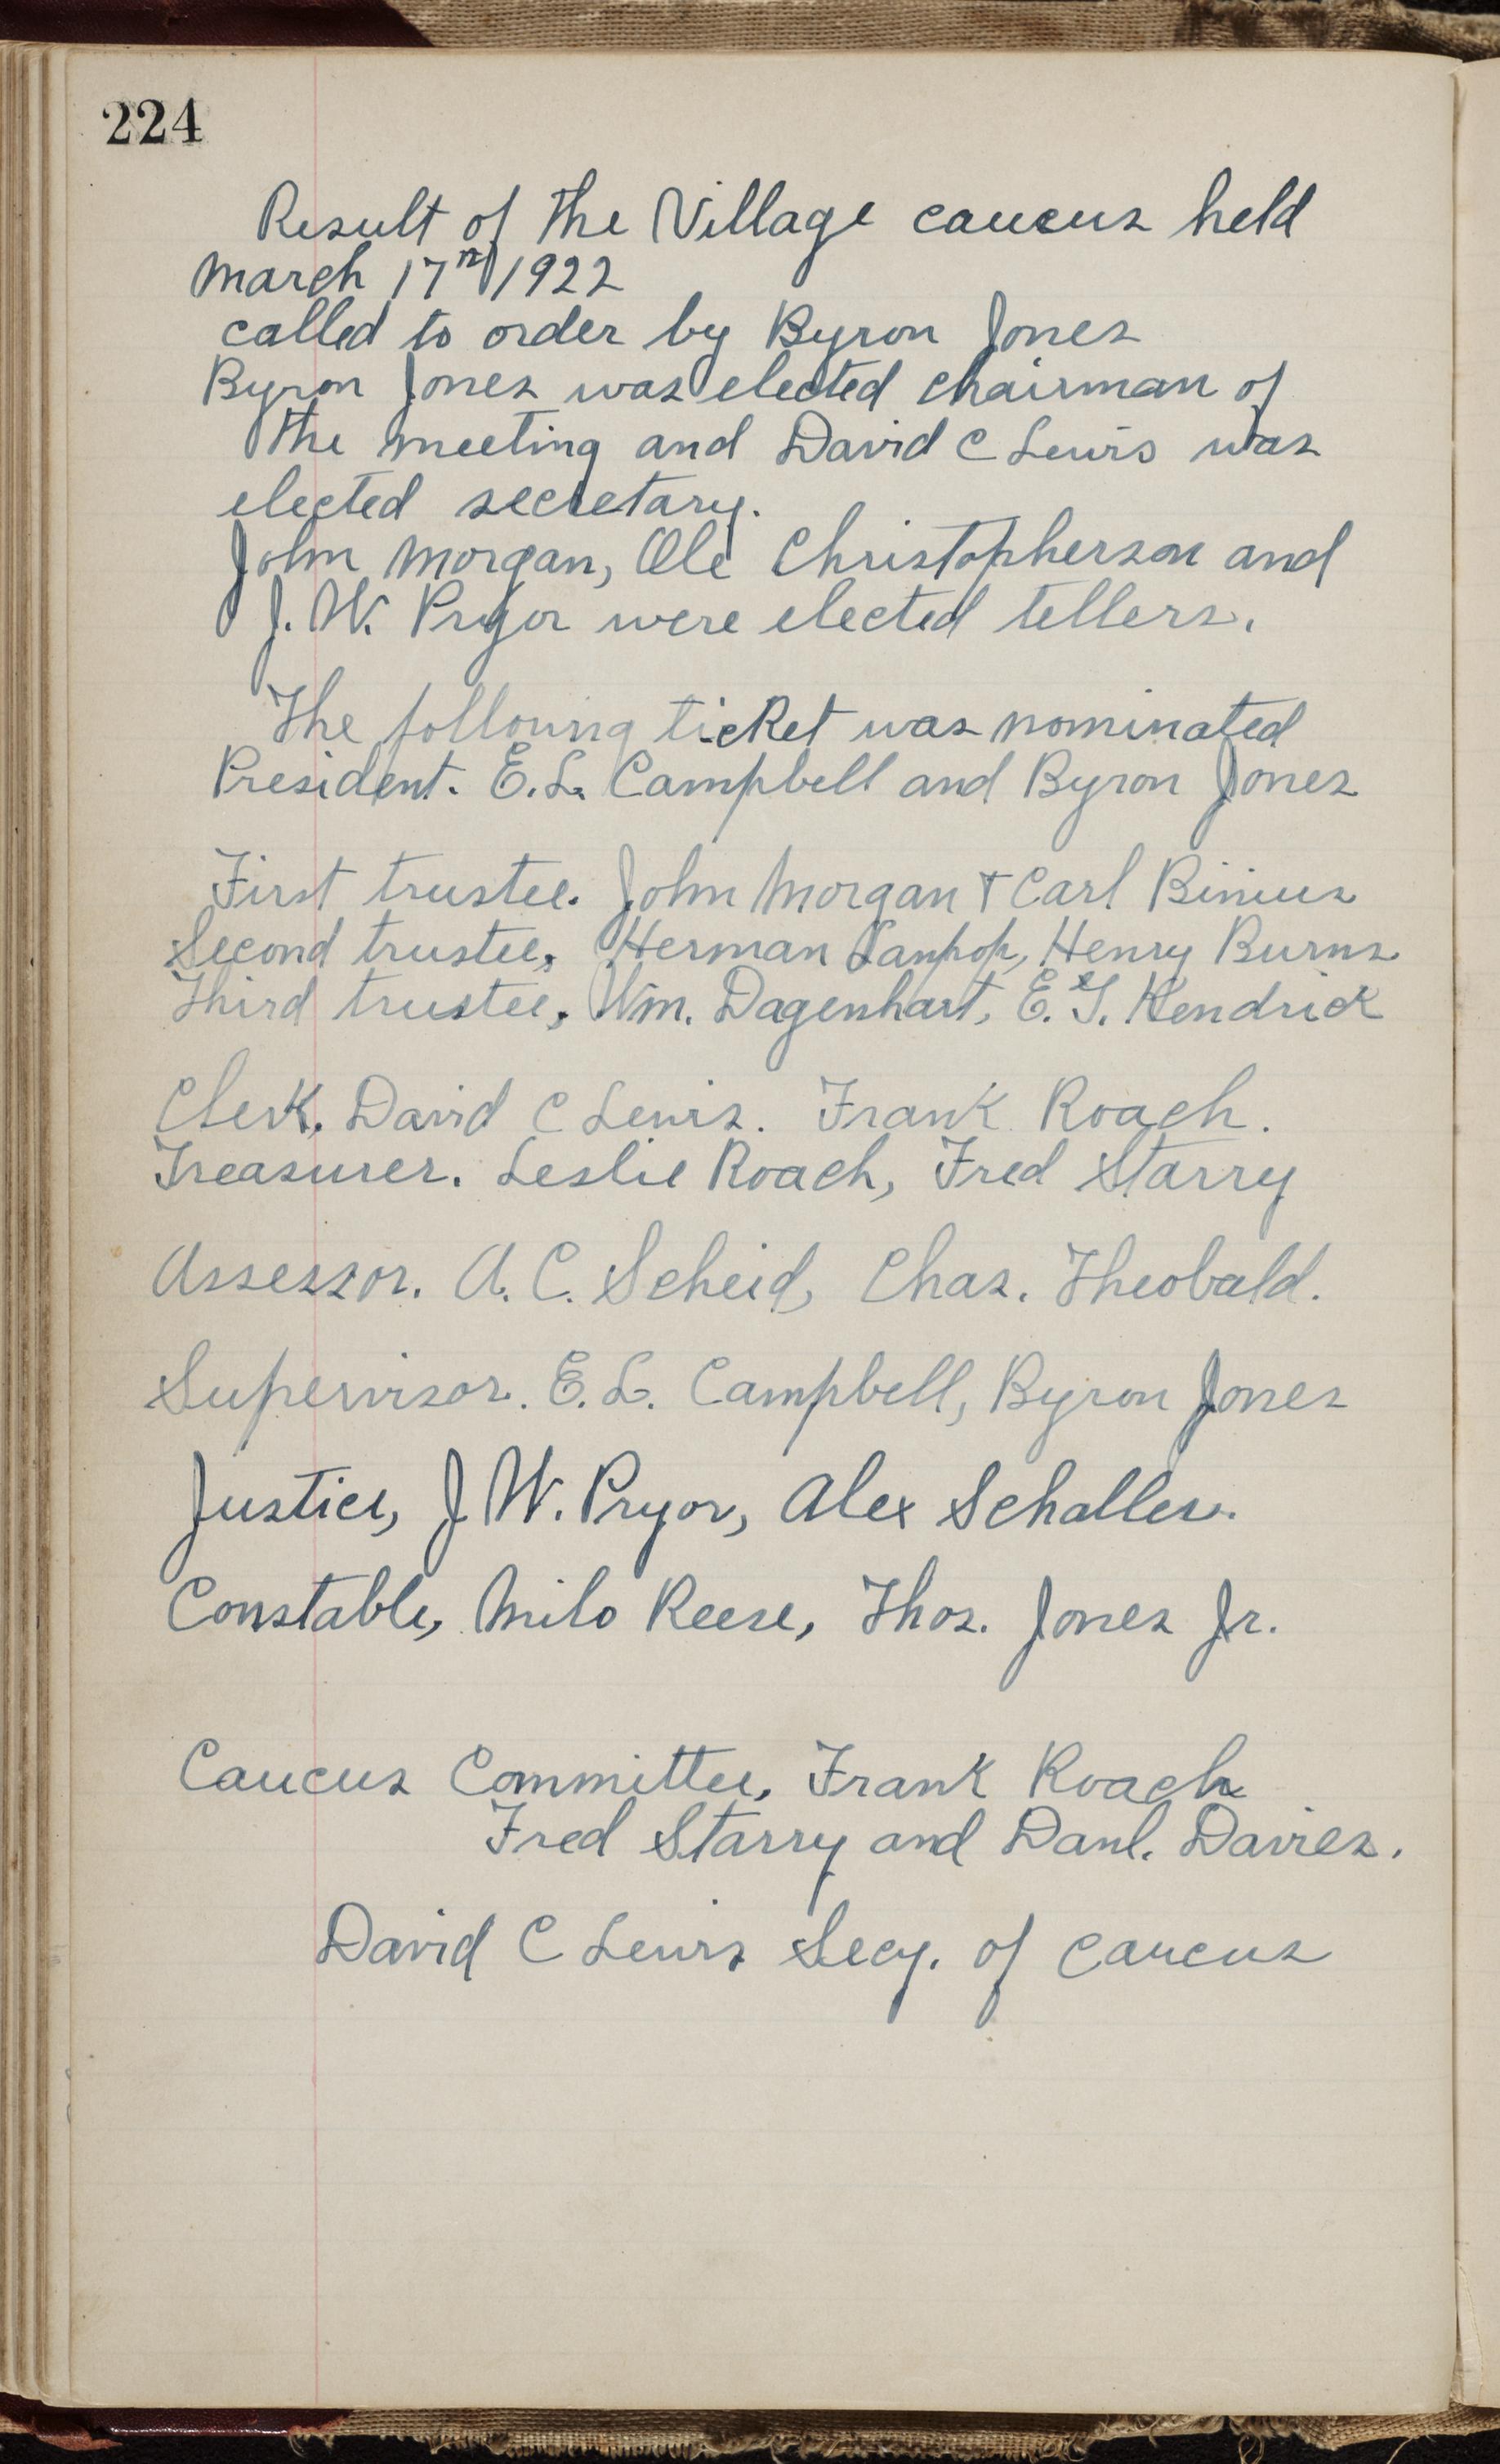 224
Result of the Village caucus held
March 17th 1922
called to order by Byron Jones
Byron Jones was elected chairman of
the meeting and David C Lewis was
elected secretary.
John Morgan, Ole Christopherson and
J. W. Pryor were elected tellers.
The following ticket was nominated
President. E.L. Campbell and Byron Jones
First trustee. John Morgan + Carl Binius
Second trustee, Herman Lanpop, Henry Burns
Third trustee, Wm. Dagenhart, E. G. Kendrick
Clerk, David C Lewis. Frank Roach.
Treasurer. Leslie Roach, Fred Starry
Assessor. A. C. Scheid, Chas. Theobald.
Supervisor. E. L. Campbell, Byron Jones
Justice, J W. Pryor, Alex Schaller.
Constable, Milo Reese, Thos. Jones Jr.
Caucus Committee, Frank Roach
Fred Starry and Danl. Davies.
David C Lewis Secy. of caucus